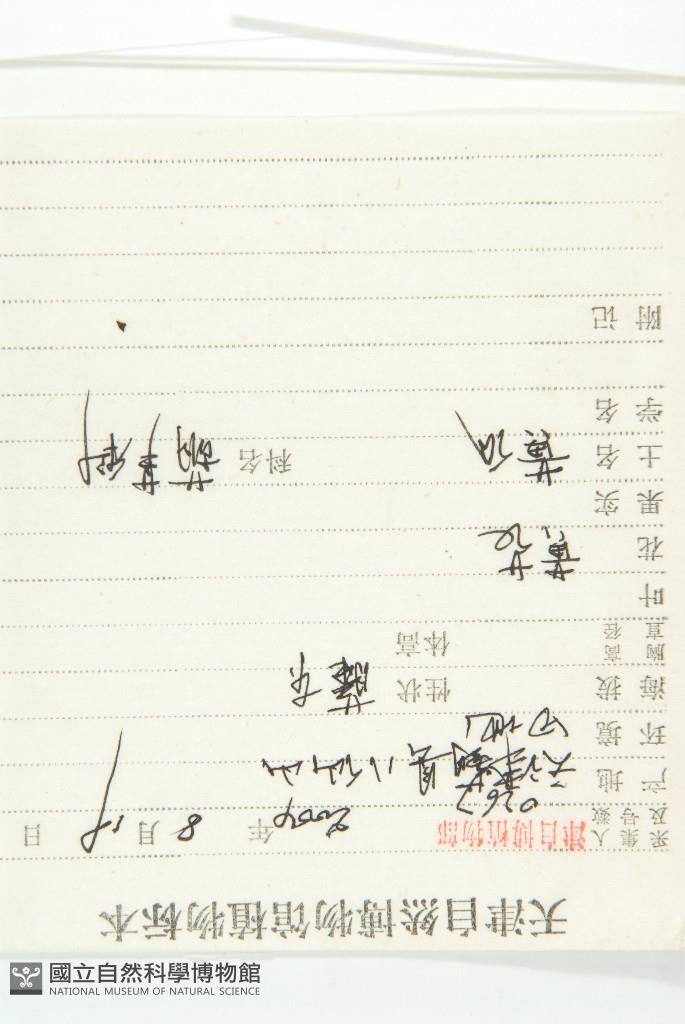 天津自然博物馆植物标本
采集人及号数 津自博植物部 0267 2004年8月19日
产地 天津蓟县八仙山
环境 山地
海拔 性状 草本
胸高直径 体高
叶
花 黄花
果实
土名 科名 葫芦科
学名
附记
國立自然科學博物館
NATIONAL MUSEUM OF NATURAL SCIENCE